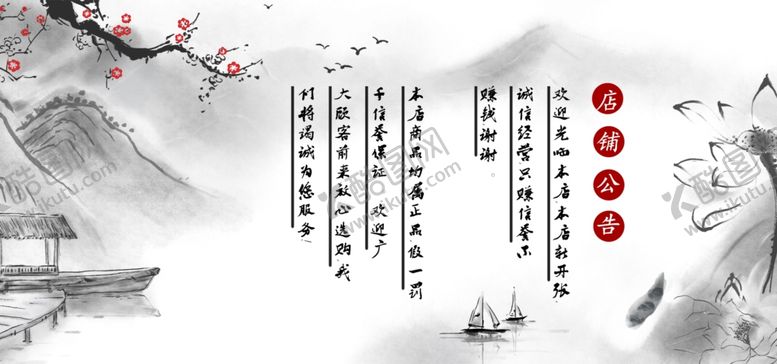 店铺公告
欢迎光临本店本店新开张
诚信经营只赚信誉不
赚钱谢谢。
本店商品均属正品假一罚
千信誉保证 欢迎广
大顾客前来放心选购我
们将竭诚为您服务!
酷图网
www.ikutu.com